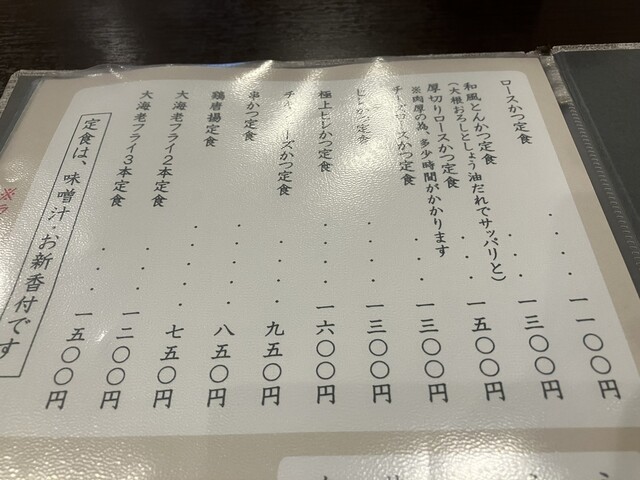 ロースかつ定食・・・一一〇〇円
和風とんかつ定食・・・一三〇〇円
(大根おろしとしょう油だれでサッパリと)
厚切りロースかつ定食・・・一五〇〇円
※肉厚の為、多少時間がかかります
チーズロースかつ定食・・・一三〇〇円
ヒレかつ定食・・・一三〇〇円
極上ヒレかつ定食・・・一六〇〇円
ーズかつ定食・・・九五〇円
串かつ定食・・・八五〇円
鶏唐揚定食・・・七五〇円
大海老フライ2本定食・・・一二〇〇円
大海老フライ3本定食・・・一五〇〇円
定食は、味噌汁・お新香付です